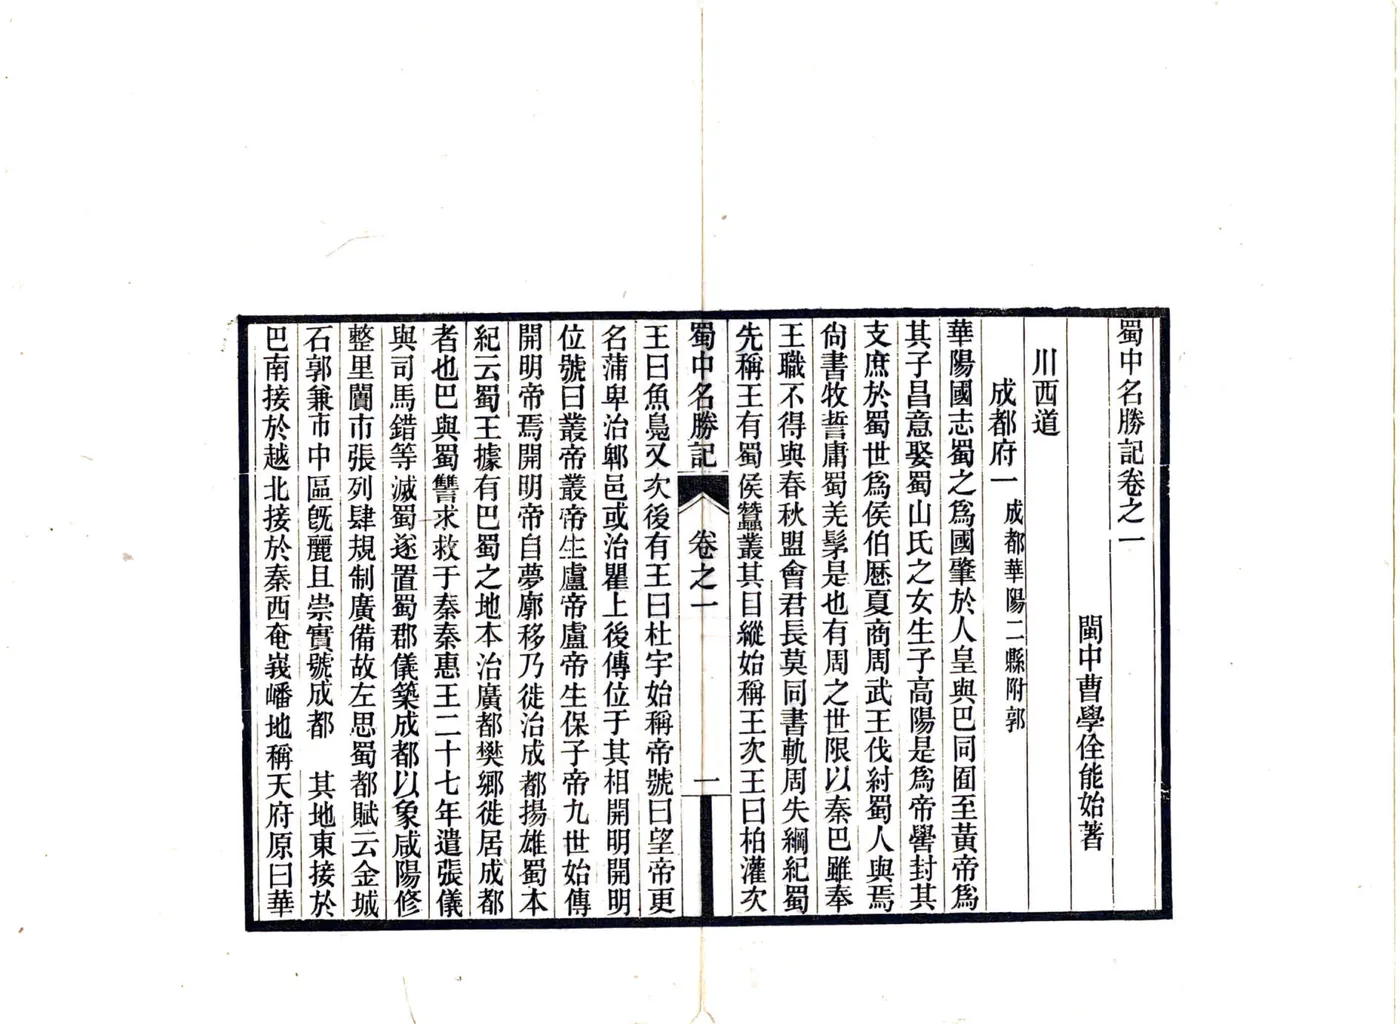 蜀中名勝記卷之一
閩中曹學佺能始著
川西道
成都府一 成都華陽二縣附郭
華陽國志蜀之爲國肇於人皇與巴同囿至黃帝爲
其子昌意娶蜀山氏之女生子高陽是爲帝嚳封其
支庶於蜀世爲侯伯歷夏商周武王伐紂蜀人與焉
尙書牧誓庸蜀羌髳是也有周之世限以秦巴雖奉
王職不得與春秋盟會君長莫同書軌周失綱紀蜀
先稱王有蜀侯蠶叢其目縱始稱王次王曰柏灌次
蜀中名勝記 卷之一 一
王曰魚鳧又次後有王曰杜宇始稱帝號曰望帝更
名蒲卑治郫邑或治瞿上後傳位于其相開明開明
位號曰叢帝叢帝生盧帝盧帝生保子帝九世始傳
開明帝焉開明帝自夢廓移乃徙治成都揚雄蜀本
紀云蜀王據有巴蜀之地本治廣都樊鄉徙居成都
者也巴與蜀讐求救于秦秦惠王二十七年遣張儀
與司馬錯等滅蜀遂置蜀郡儀築成都以象咸陽修
整里闠市張列肆規制廣備故左思蜀都賦云金城
石郭兼帀中區旣麗且崇實號成都 其地東接於
巴南接於越北接於秦西奄峩嶓地稱天府原曰華